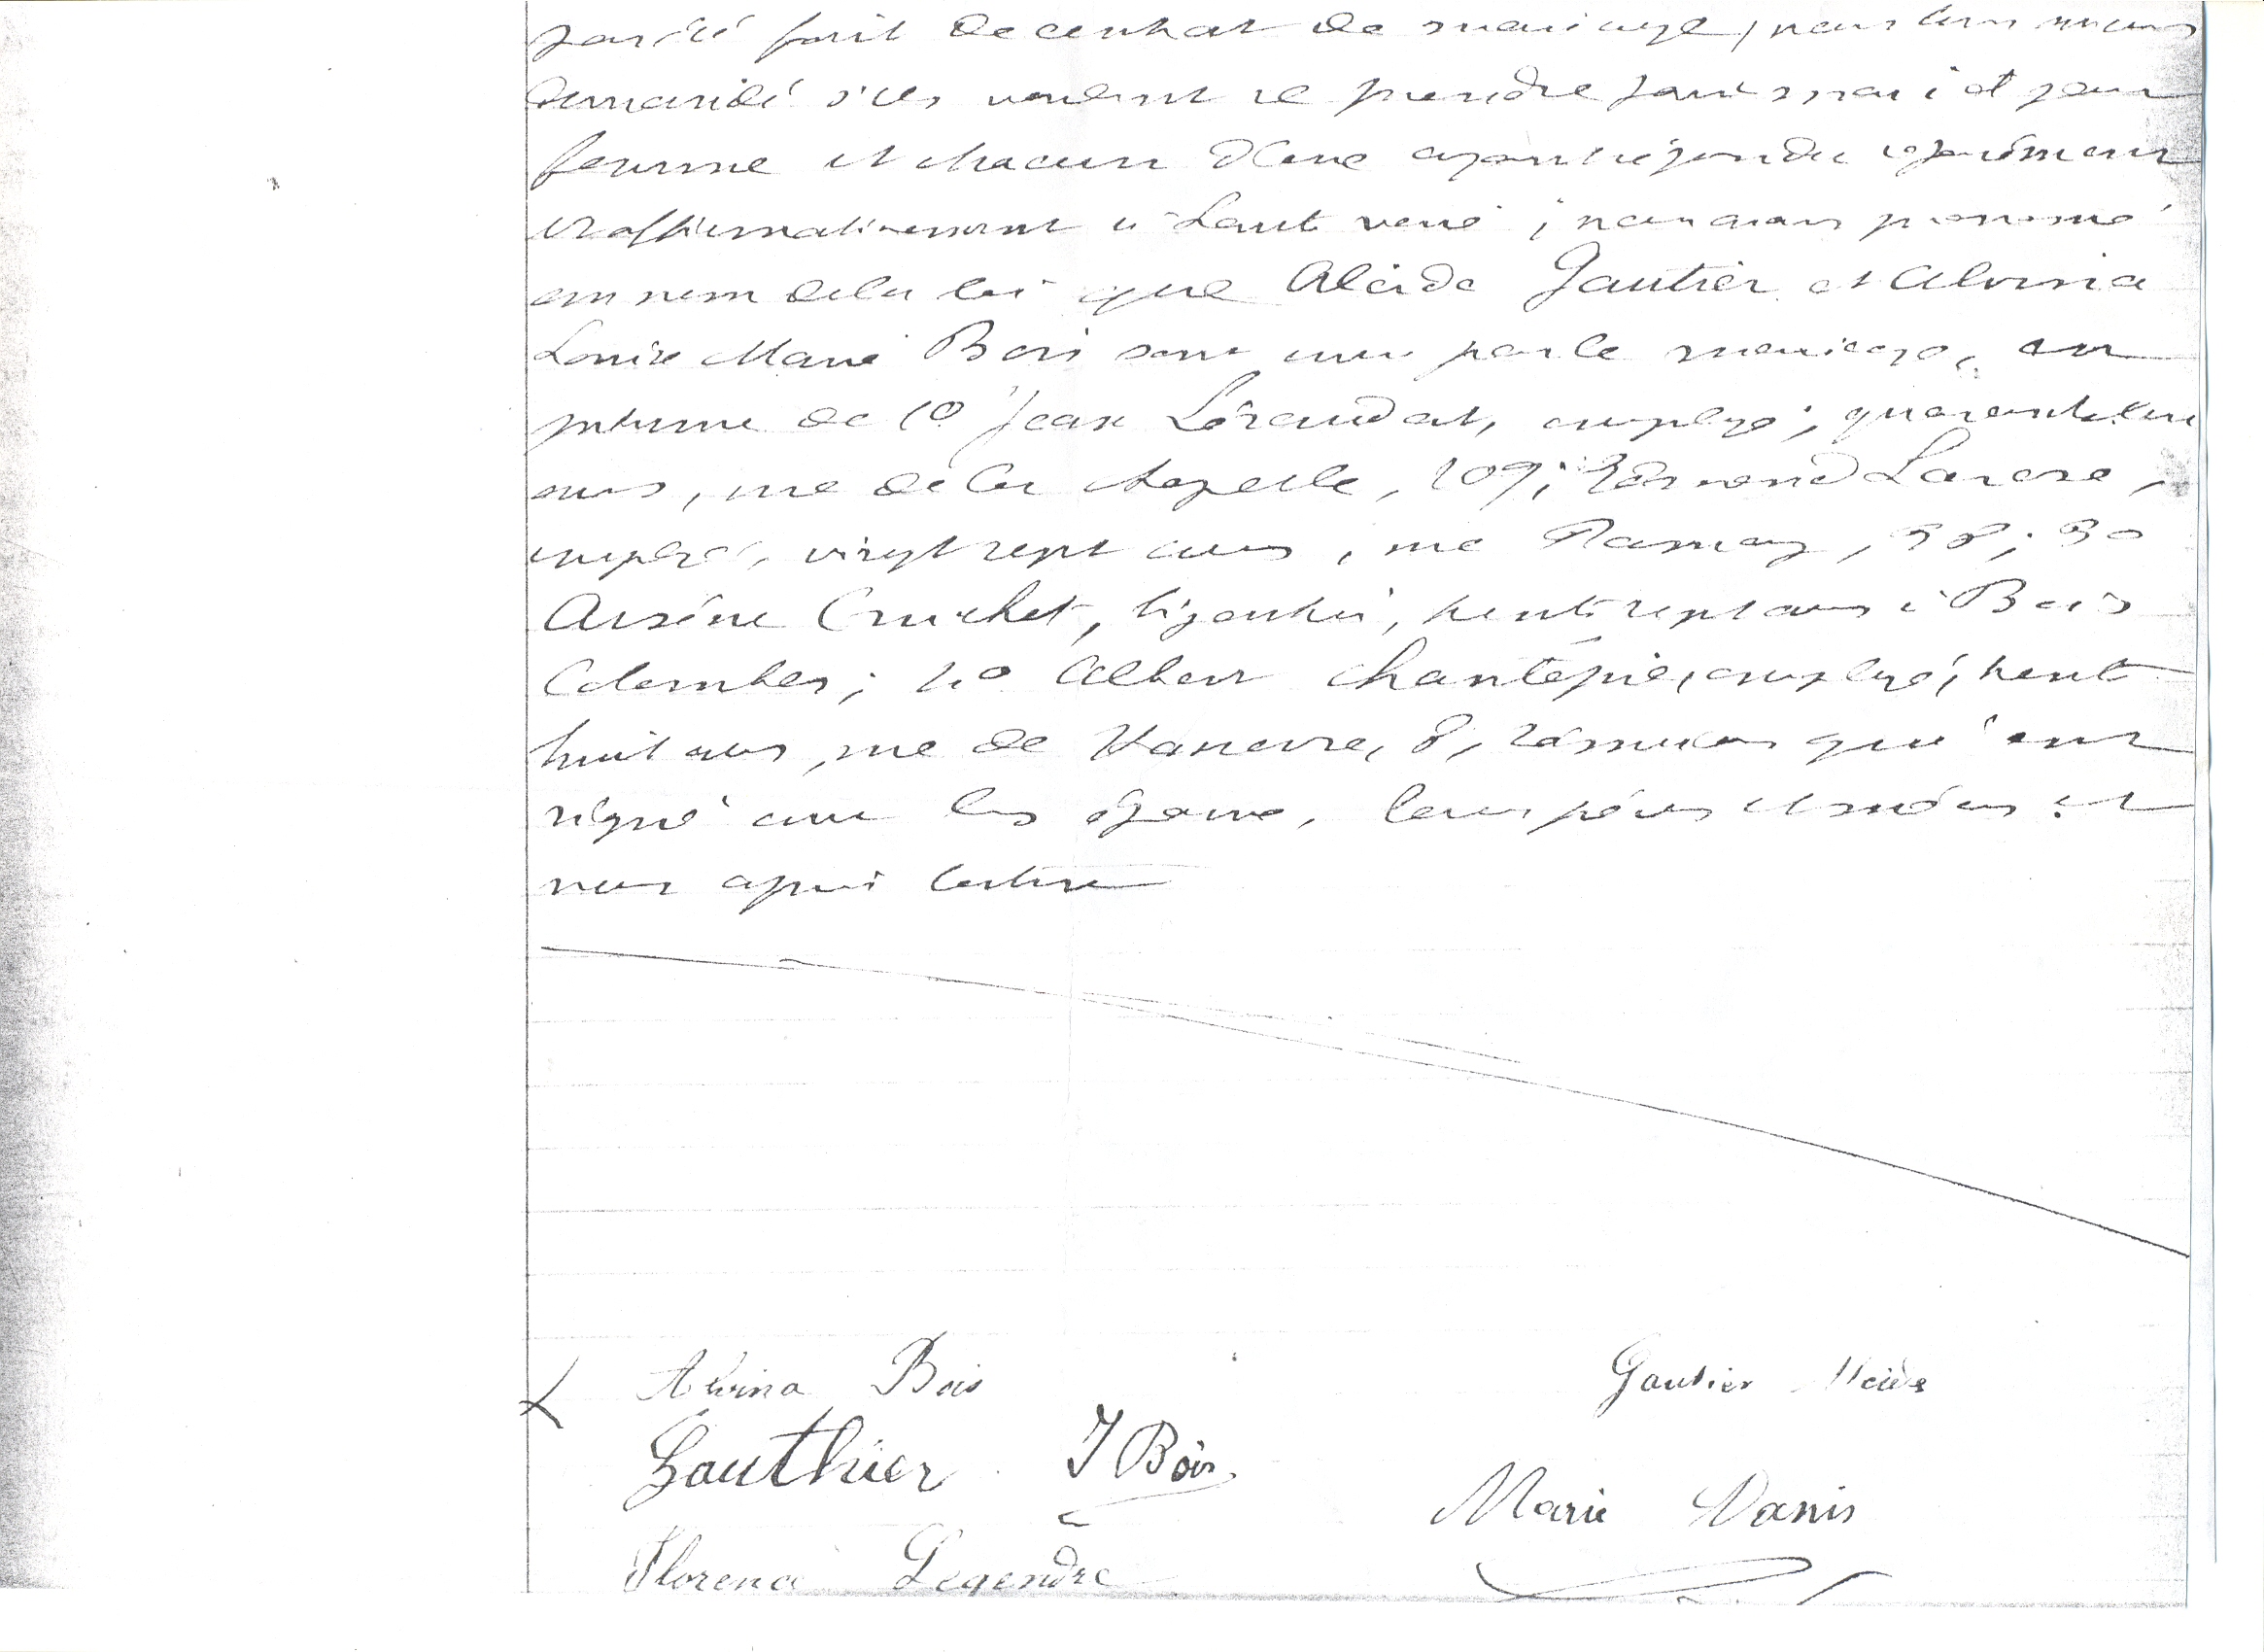 fait de contrat de mariage, nous leur avons
demandé s'ils veulent se prendre pour mari et pour
femme et chacun d'eux ayant répondu séparément
et affirmativement à haute voix ; nous avons prononcé
au nom de la loi que Alcide Gautier et Alvina
Louise Marie Bois sont unis par le mariage, en
présence de 1º Jean employé, quarante
ans, rue de la Chapelle, 109; 2º Edmond
employé, vingt sept ans, rue Ramey, 38; 3º
Arsène Cruchet, bijoutier, trente sept ans à Bois
Colombes; 4º Albert Chantepie, employé, trente
huit ans, rue de 8, témoins qui ont
signé avec les époux, leurs pères et mères et
nous après lecture
Alvina Bois Gautier Alcide
Gauthier J Bois
Marie Danis
Florence Legendre